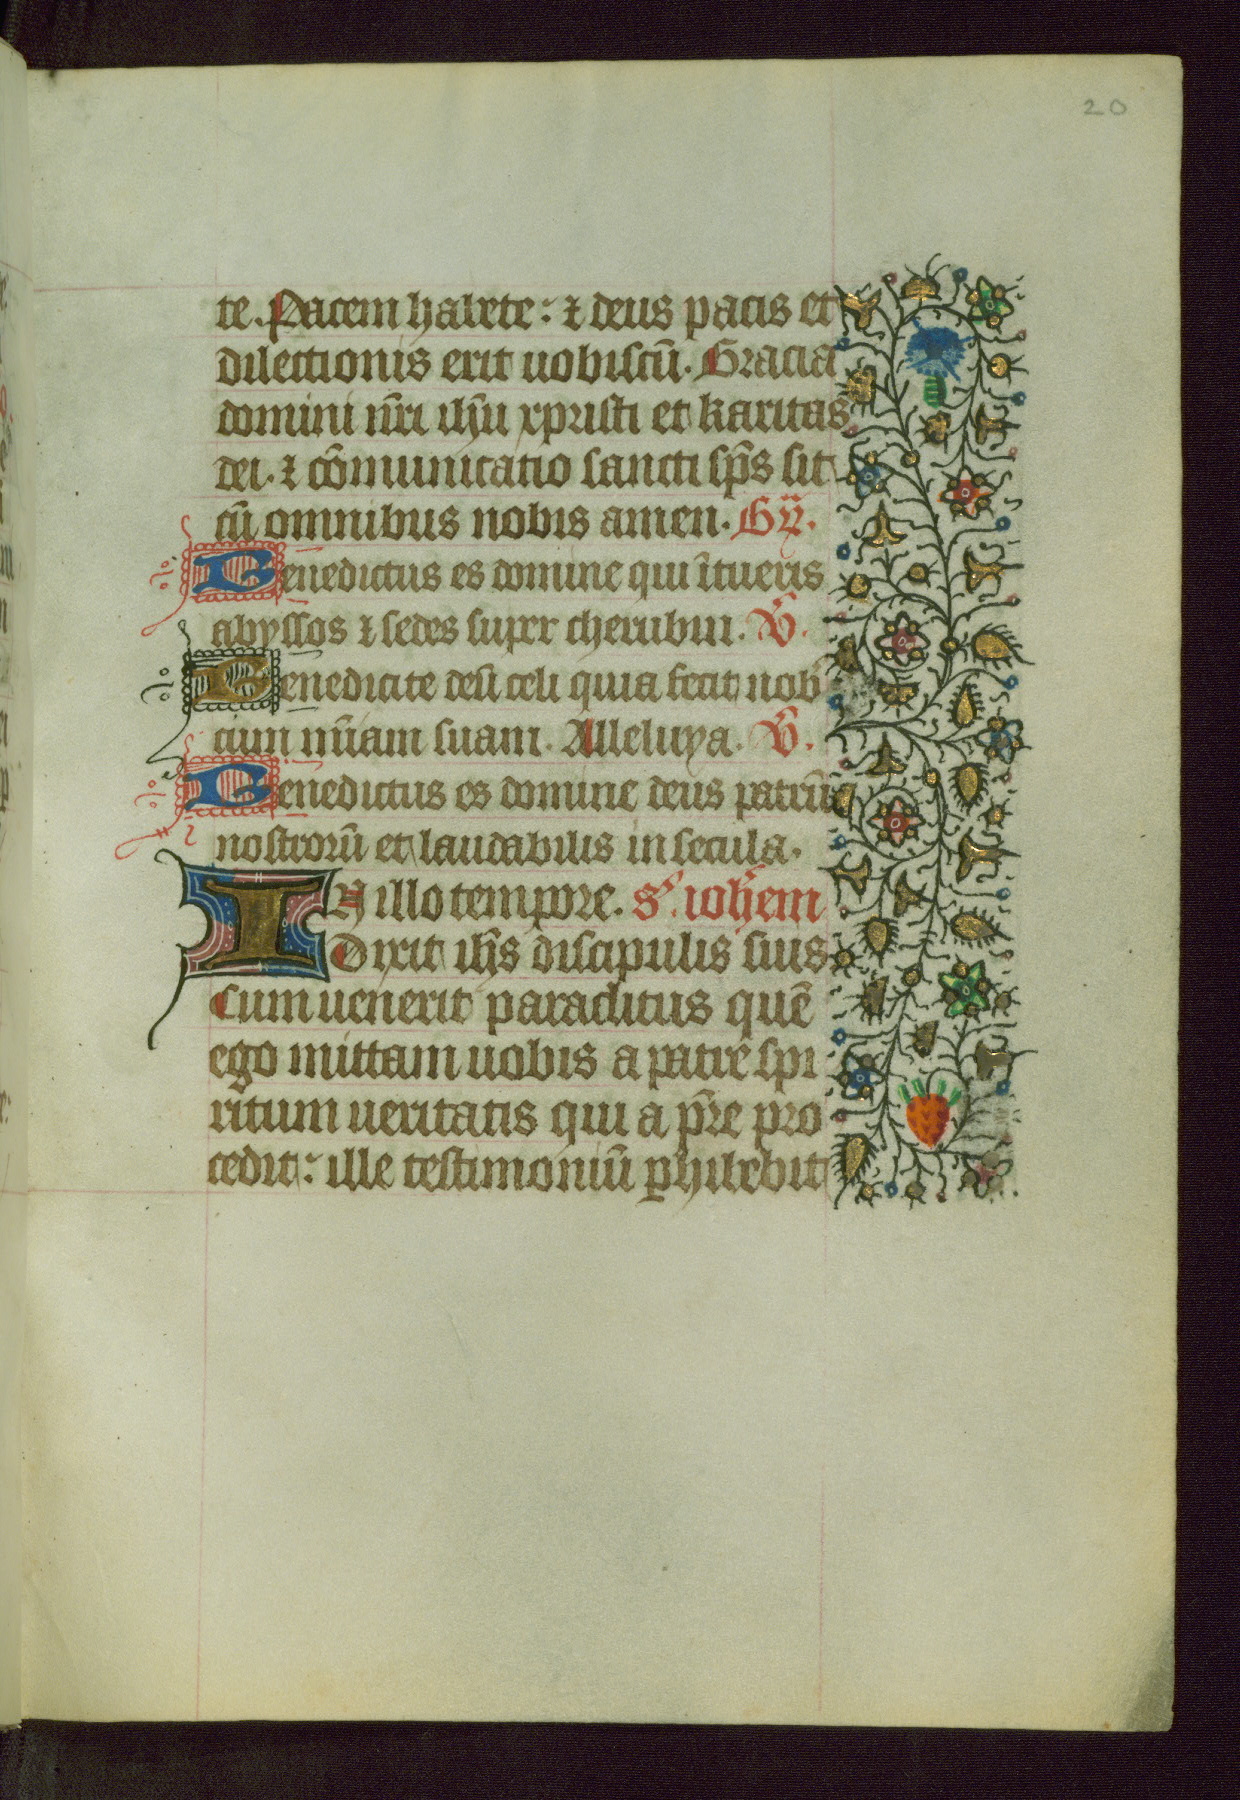 20
te. Pacem habete: ⁊ deus pacis et
dilectionis erit uobiscū. Gracia
domini nr̄i ih̄u xpristi et karitas
dei. ⁊ cōmunicatio sancti sp̄s sit
cū omnibus nobis amen. Gr̄.
Benedictus es domine qui ītueris
abyssos ⁊ sedes super cherubin. V̄.
Benedicite deū celi quia fecit nob
cum mīam suam. Alleluya. V̄.
Benedictus es domine deus patrū
nostrorū et laudabilis in secula.
IN illo tempore. S. ioh̄em
Dixit ih̄s discipulis suis
Cum uenerit paraclitus quē
ego mittam uobis a patre spi
ritum ueritatis qui a pr̄e pro
cedit: ille testimoniū ꝑhibebit